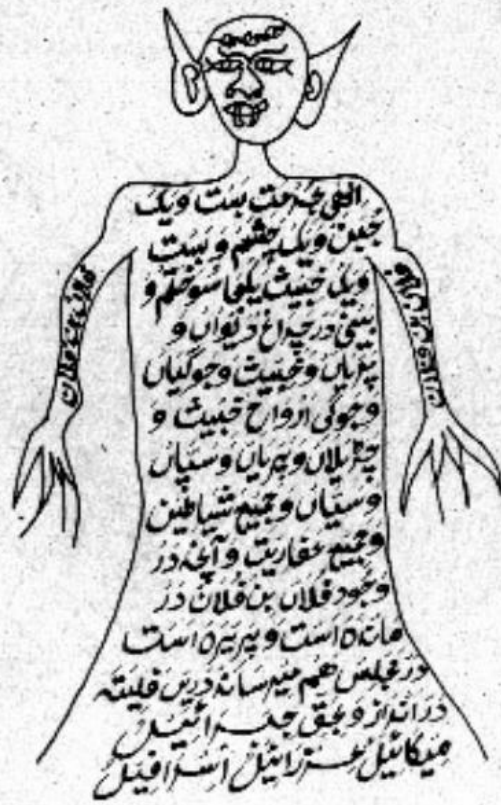 الهی بحرمت بست و یک
جبین و یک چشم و بست
و یک خبیث یکجا سوختم و
بینی در چراغ دیوان و
پریاں و خبیث و جوگیاں
و جوگی ارواح خبیث و
چڑیلاں و پیریاں و سیپاں
و سیتاں و جمیع شیاطین
و جمیع عفاریت و آنچه در
وجود فلاں بن فلان در
مانده است و پیریده است
در مجلس هم میرساند دریں فلیته
در انداز و بحق جبرائیل
میکائیل عزرائیل اسرافیل
فلاں بن فلاں